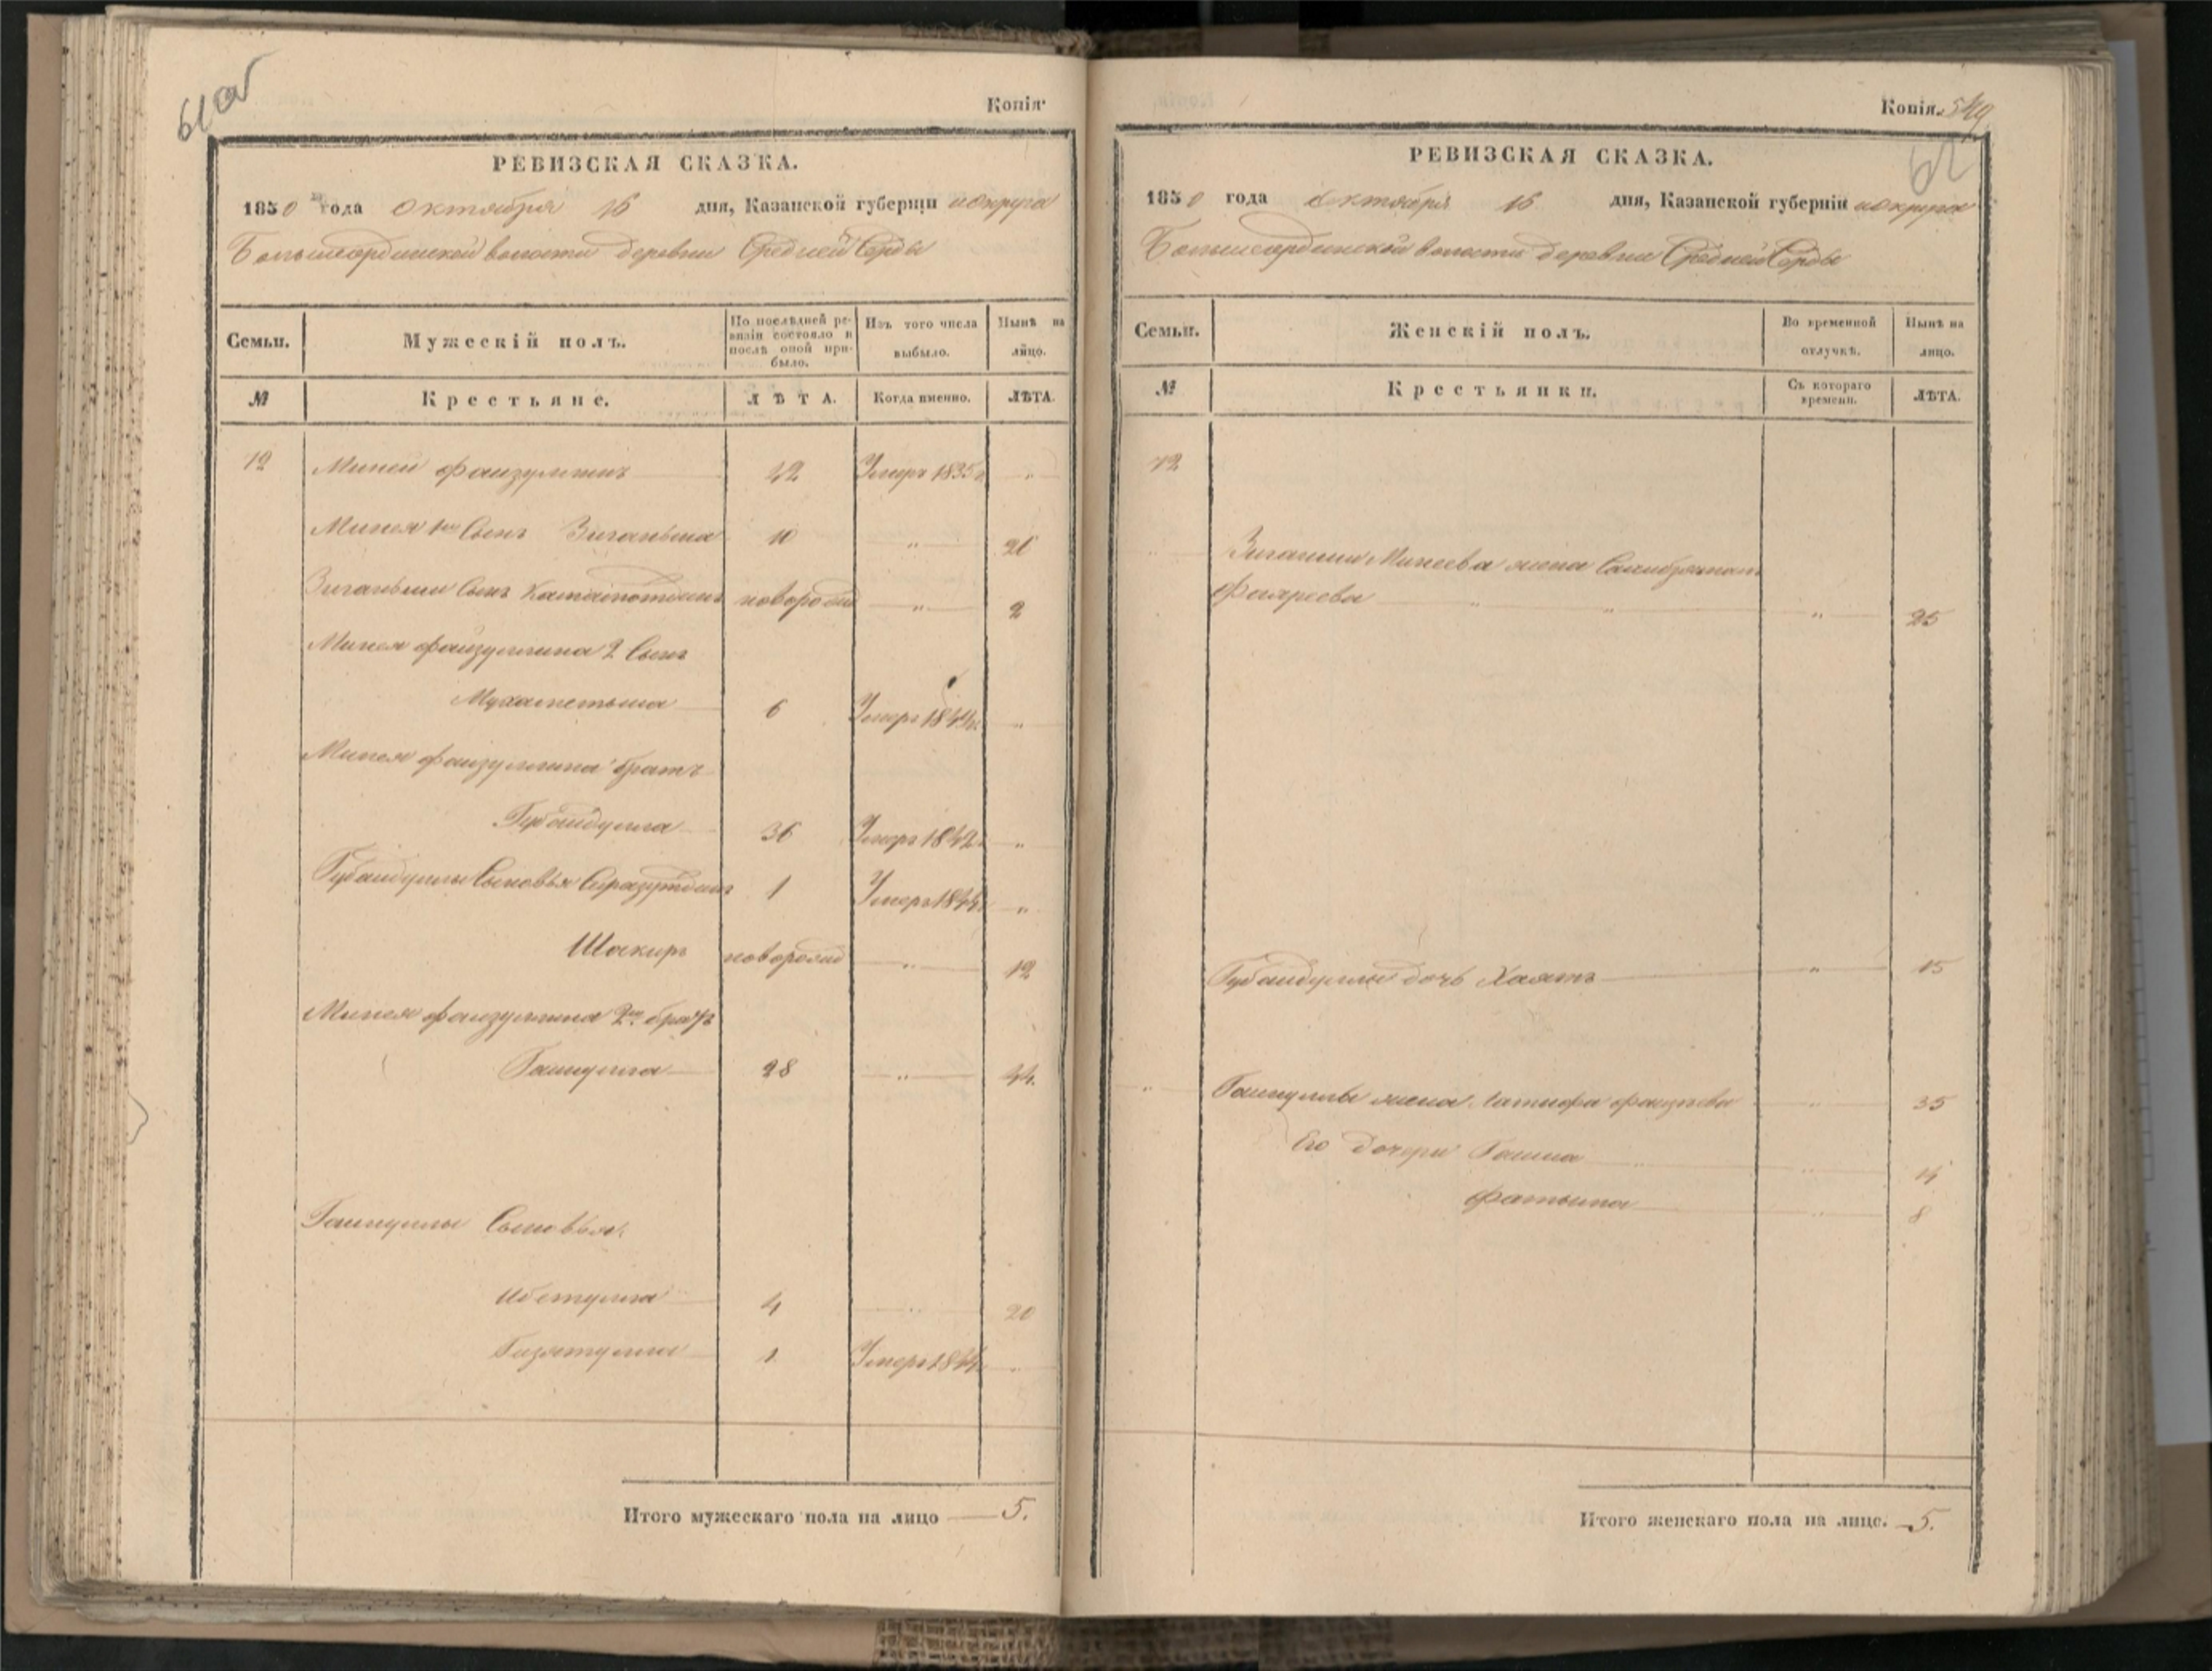 61об
Копія.
РЕВИЗСКАЯ СКАЗКА.
1850 года октября 16 дня, Казанской губерніи и округа
Большесердинской волости деревни Средней Серды
Семьи. Мужескій полъ. По послѣдней ревизіи состояло и послѣ оной прибыло. Изъ того числа выбыло. Нынѣ на лицо.
№ Крестьяне. ЛѢТА. Когда именно. ЛѢТА.
12 Миней Фаизуллинъ 42 Умеръ 1835 г "
Минея 1й Сынъ Зиганьша 10 " 26
Зиганьши Сынъ новорожд " 2
Минея Файзуллина 2 Сынъ
Мухаметьша 6 Умеръ "
Минея Фаизуллина братъ
Губайдулла 36 Умеръ 1842 "
Губайдуллы Сыновья Сиразутдинъ 1 Умеръ "
Шакиръ новорожд " 12
Минея Фаизуллина 2й братъ
28 " 44
Сыновья:
4 " 20
1 Умеръ "
Итого мужескаго пола на лицо 5.
Копія. 549
62
РЕВИЗСКАЯ СКАЗКА.
1850 года октября 16 дня, Казанской губерніи и округа
Большесердинской волости деревни Средней Серды
Семьи. Женскій полъ. Во временной отлучкѣ. Нынѣ на лицо.
№ Крестьянки. Съ котораго времени. ЛѢТА.
12
Зиганши Минеева жена
" " " 25
Губайдуллы дочь Хаятъ " 15
" жена Латифа " 35
Его дочери " 14
Фатыма " 8
Итого женскаго пола на лицо. 5.